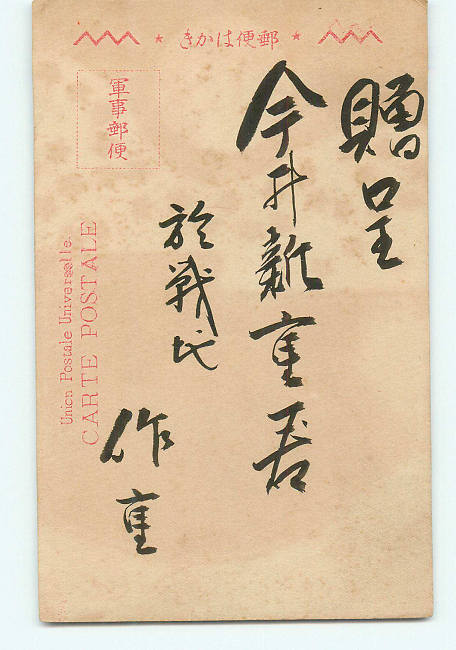 郵便はかき
軍事郵便
贈呈
今井 重君
於戦地
作重
Union Postale Universelle.
CARTE POSTALE